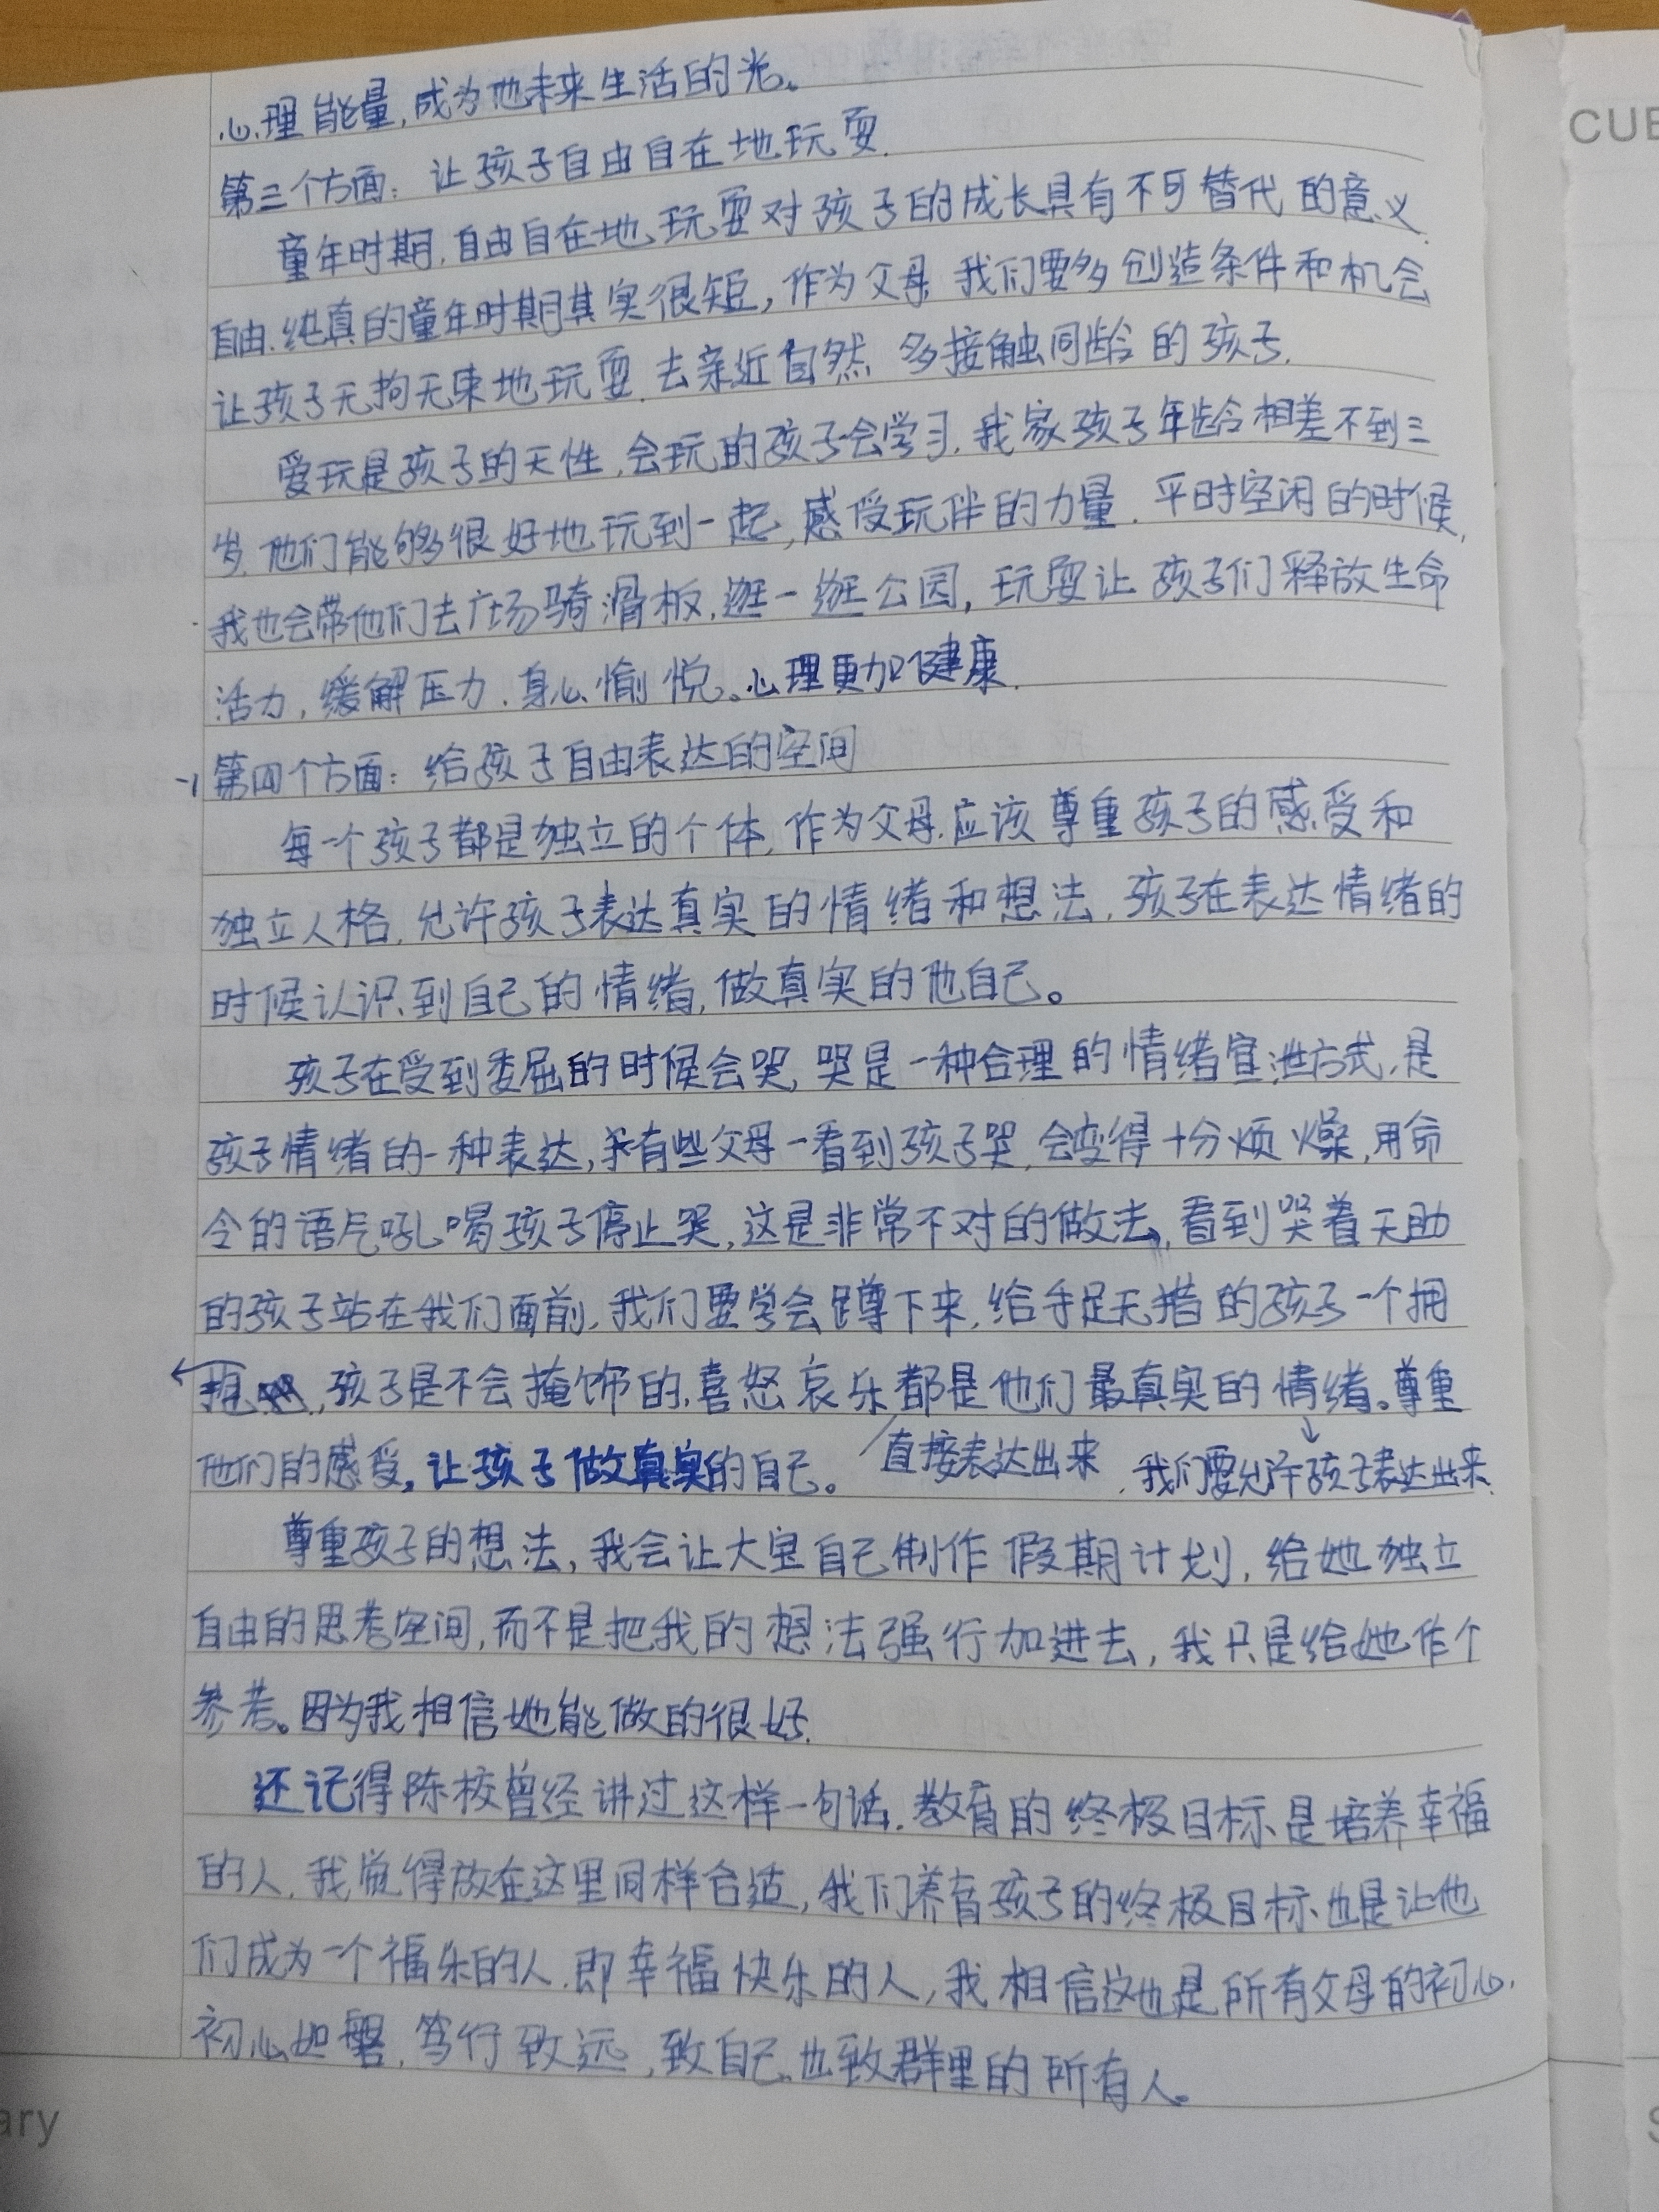 心理能量,成为他未来生活的光。
第三个方面:让孩子自由自在地玩耍.
童年时期,自由自在地玩耍对孩子的成长具有不可替代的意义.
自由.纯真的童年时期其实很短,作为父母,我们要多创造条件和机会
让孩子无拘无束地玩耍.去亲近自然,多接触同龄的孩子.
爱玩是孩子的天性,会玩的孩子会学习.我家孩子年龄相差不到三
岁.他们能够很好地玩到一起,感受玩伴的力量.平时空闲的时候,
我也会带他们去广场骑滑板,逛一逛公园,玩耍让孩子们释放生命
活力,缓解压力.身心愉悦。心理更加健康.
第四个方面:给孩子自由表达的空间
每一个孩子都是独立的个体,作为父母.应该尊重孩子的感受和
独立人格.允许孩子表达真实的情绪和想法,孩子在表达情绪的
时候认识到自己的情绪,做真实的他自己。
孩子在受到委屈的时候会哭,哭是一种合理的情绪宣泄方式,是
孩子情绪的一种表达,有些父母一看到孩子哭,会变得十分烦燥,用命
令的语气吼喝孩子停止哭,这是非常不对的做法,看到哭着无助
的孩子站在我们面前,我们要学会蹲下来,给手足无措的孩子一个拥
抱,孩子是不会掩饰的,喜怒哀乐都是他们最真实的情绪。尊重
他们的感受,让孩子做真实的自己。 直接表达出来,我们要允许孩子表达出来.
尊重孩子的想法,我会让大宝自己制作假期计划,给她独立
自由的思考空间,而不是把我的想法强行加进去,我只是给她作个
参考。因为我相信她能做的很好.
还记得陈校曾经讲过这样一句话.教育的终极目标是培养幸福
的人.我觉得放在这里同样合适,我们养育孩子的终极目标也是让他
们成为一个福乐的人.即幸福快乐的人,我相信这也是所有父母的初心.
初心如磐,笃行致远,致自己.也致群里的所有人。
CUE
ary